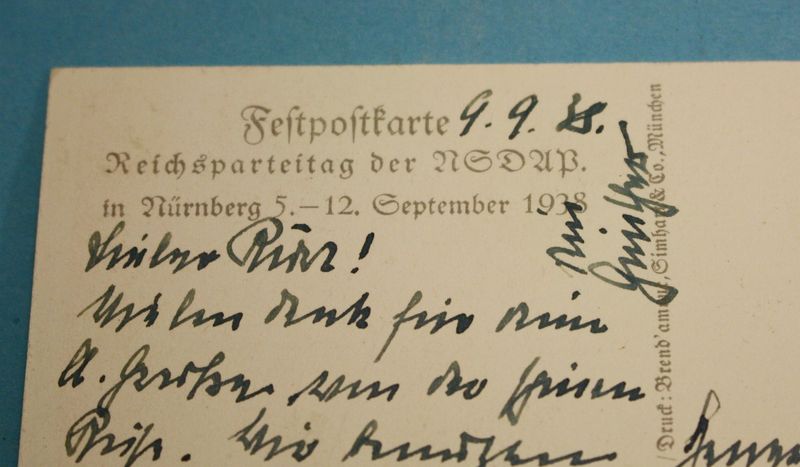 Festpostkarte 9. 9. 38.
Reichsparteitag der NSDAP.
in Nürnberg 5.—12. September 1938
Lieber !
Vielen dank für deine
A. von der
Reise. Wir
Günther
/Druck: Brend'amour, Simhart & Co., München